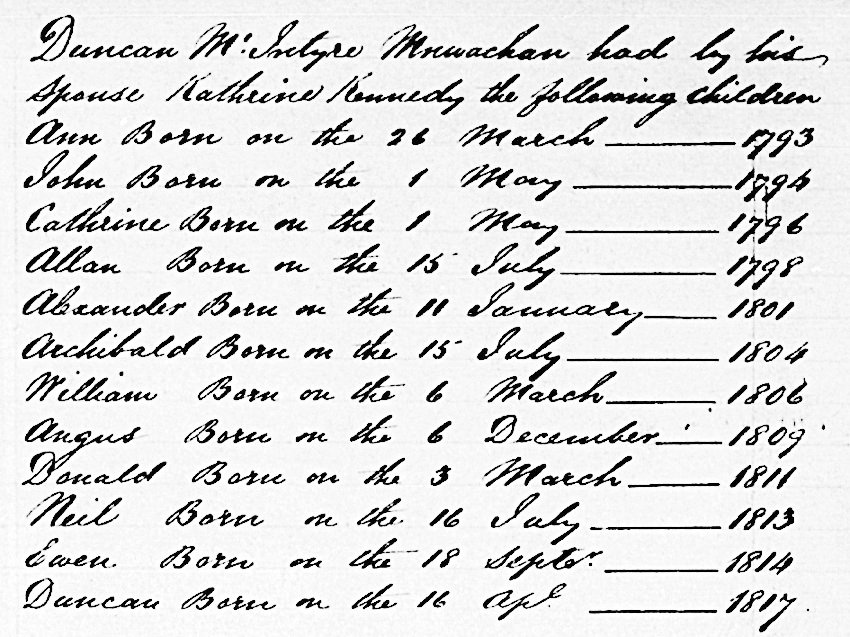 Duncan Mc Intyre Mnuachan had by his
Spouse Kathrine Kennedy the following children
Ann Born on the 26 March 1793
John Born on the 1 May 1794
Cathrine Born on the 1 May 1796
Allan Born on the 15 July 1798
Alexander Born on the 11 Jannary 1801
Archibald Born on the 15 July 1804
William Born on the 6 March 1806
Angus Born on the 6 December 1809
Donald Born on the 3 March 1811
Neil Born on the 16 July 1813
Ewen Born on the 18 Septr. 1814
Duncan Born on the 16 Apl. 1817